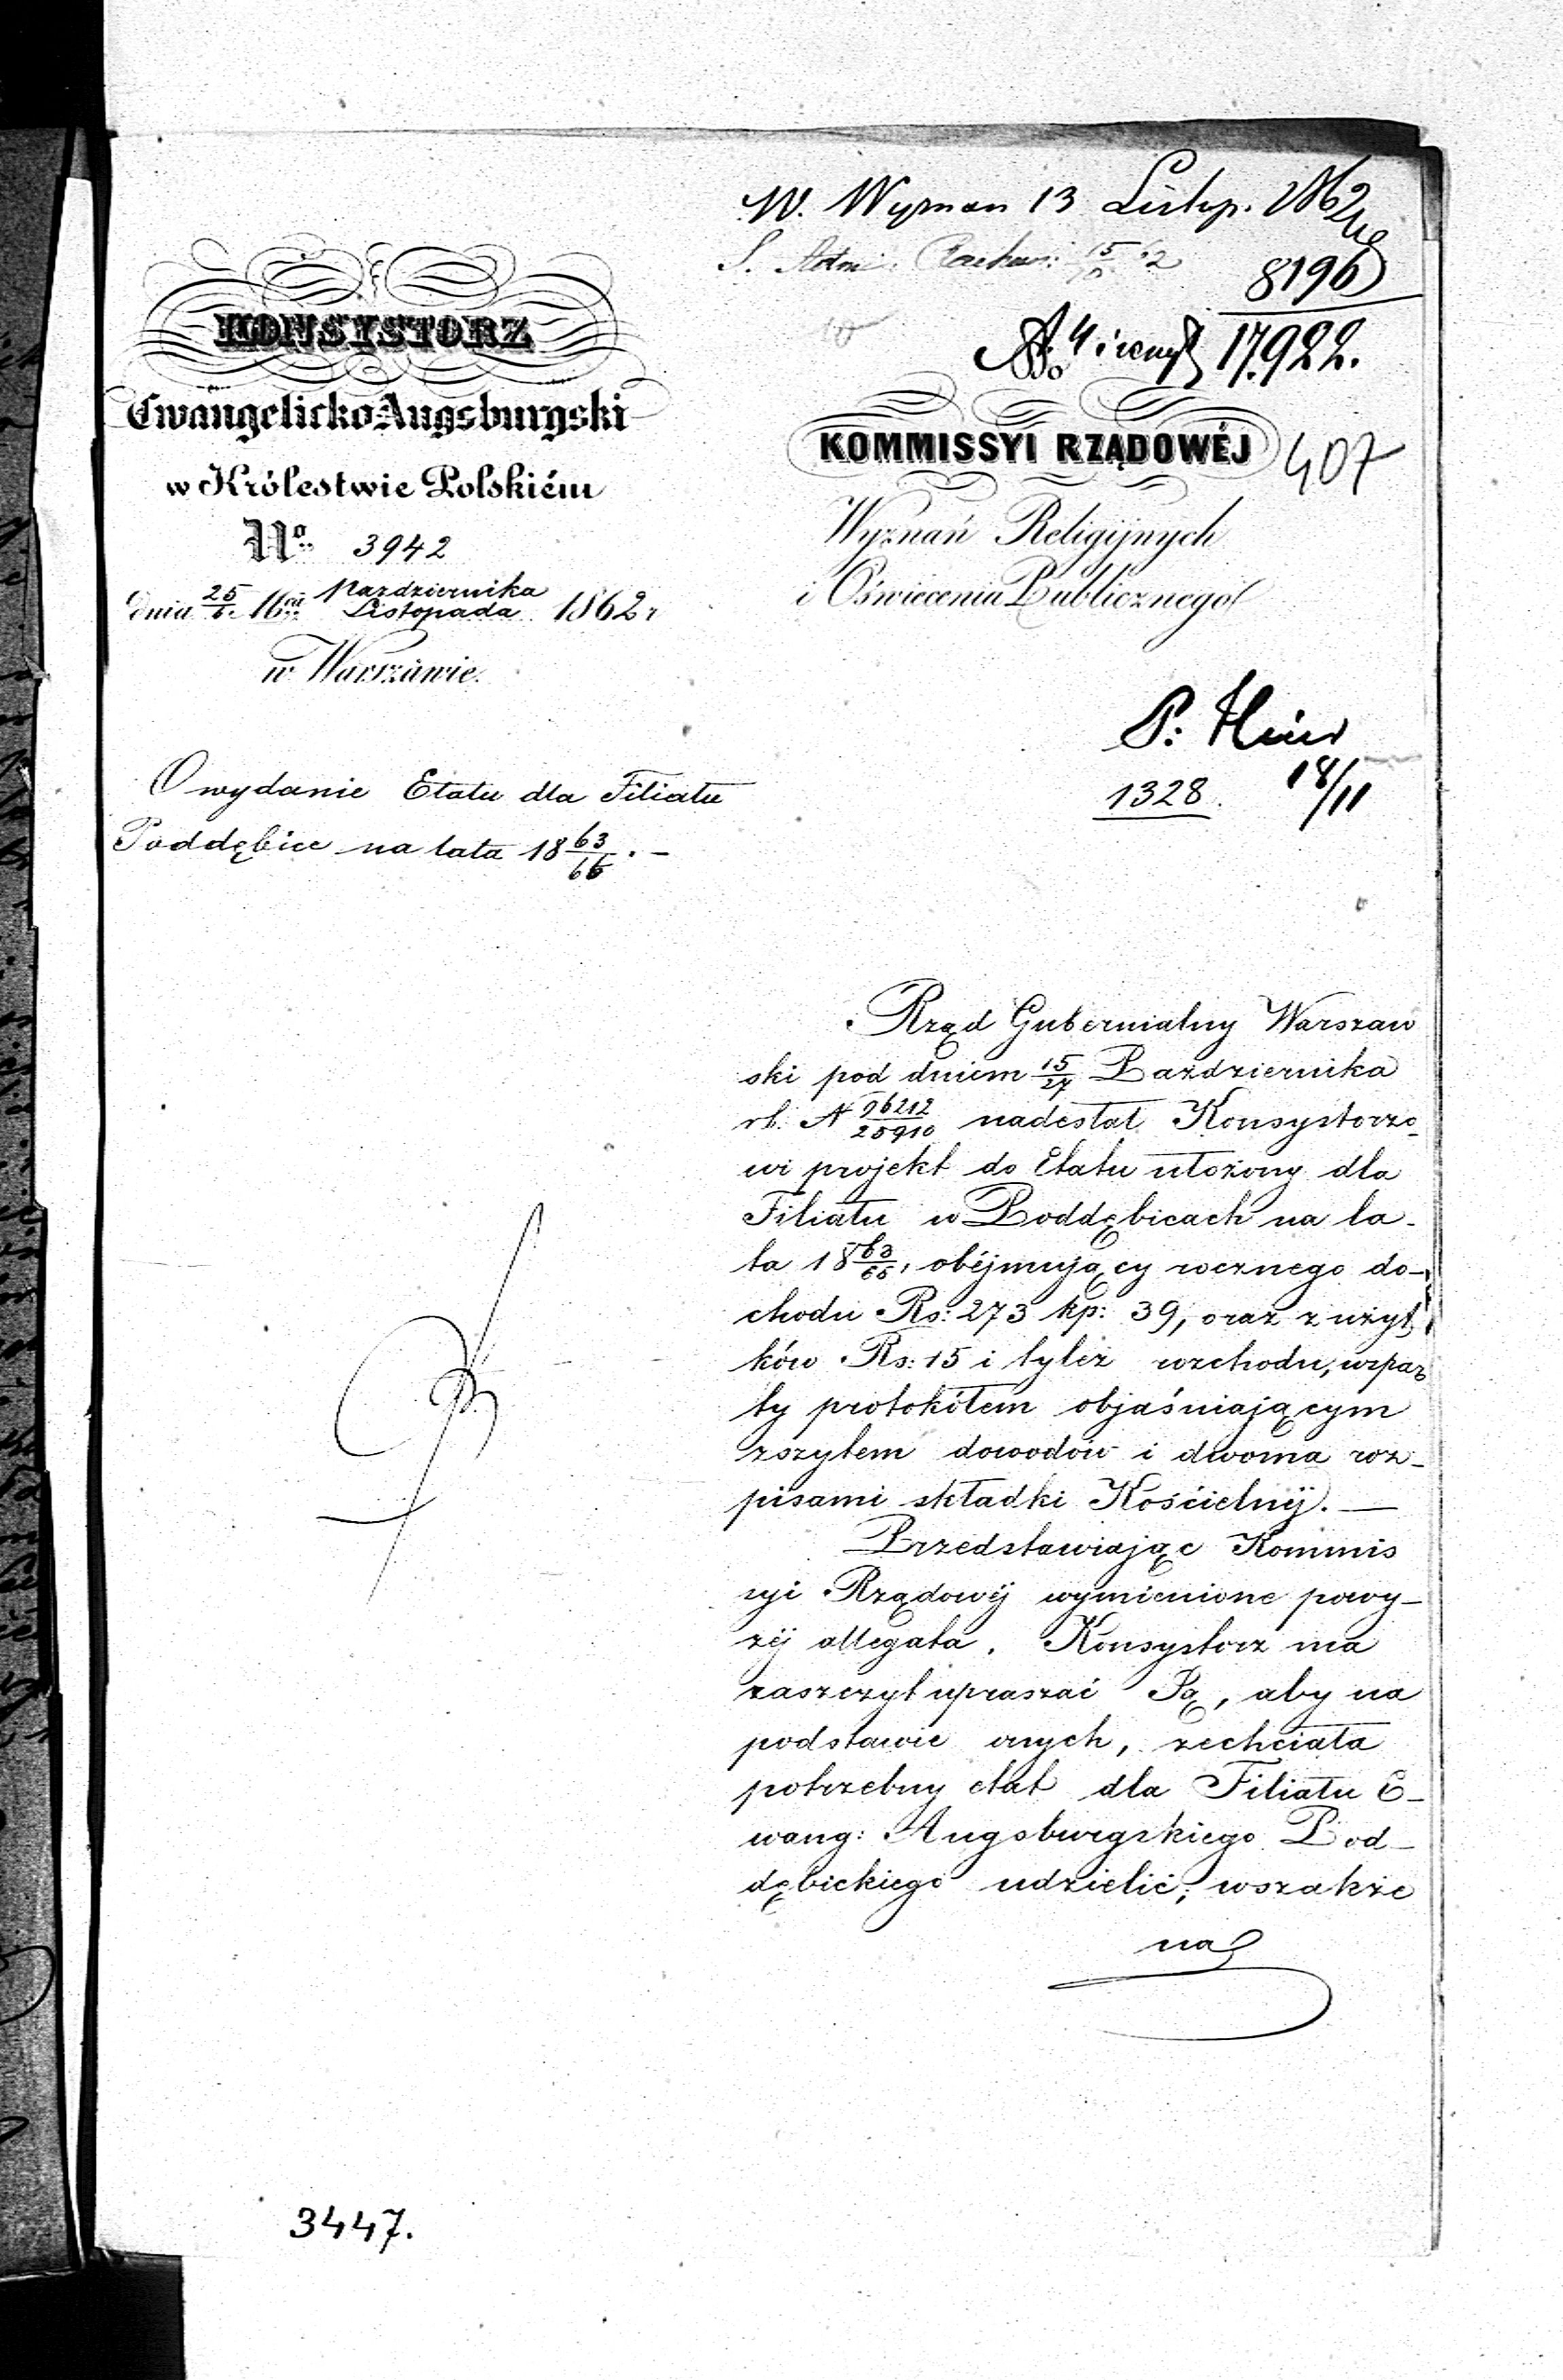 W. Wyznan 13 Listop. 1862
8196
17922.
KONSYSTORZ
Ewangelicko-Augsburgski
w Królestwie Polskiém
No. 3942
dnia 25/6 16go Pazdziernika/Listopada 1862 r
w Warszawie.
KOMMISSYI RZĄDOWÉJ 407
Wyznań Religijnych
i Oświecenia Publicznego
18/11
1328.
O wydanie Etatu dla Filiału
Poddębice na lata 18 63/65. —
Rząd Gubernialny Warszaw
ski pod dniem 15/27 Października
rb. N 96212/25910 nadesłał Konsystorzo-
wi projekt do Etatu ułożony dla
Filiału w Poddębicach na la-
ta 18 63/65, obéjmujący rocznego do-
chodu Rs: 273 kp: 39, oraz z użyt
ków Rs: 15 i tyleż rozchodu, wspar
ty protokółem objaśniającym
zszytem dowodów i dwoma roz-
pisami składki Kościelnéj. —
Przedstawiając Kommis
syi Rządowéj wymienione powy-
żéj allegata, Konsystorz ma
zaszczyt upraszać Ją, aby na
podstawie onych, zechciała
potrzebny etat dla Filiału E-
wang: Augsburgskiego Pod-
dębickiego udzielić; wszakże
na
3447.